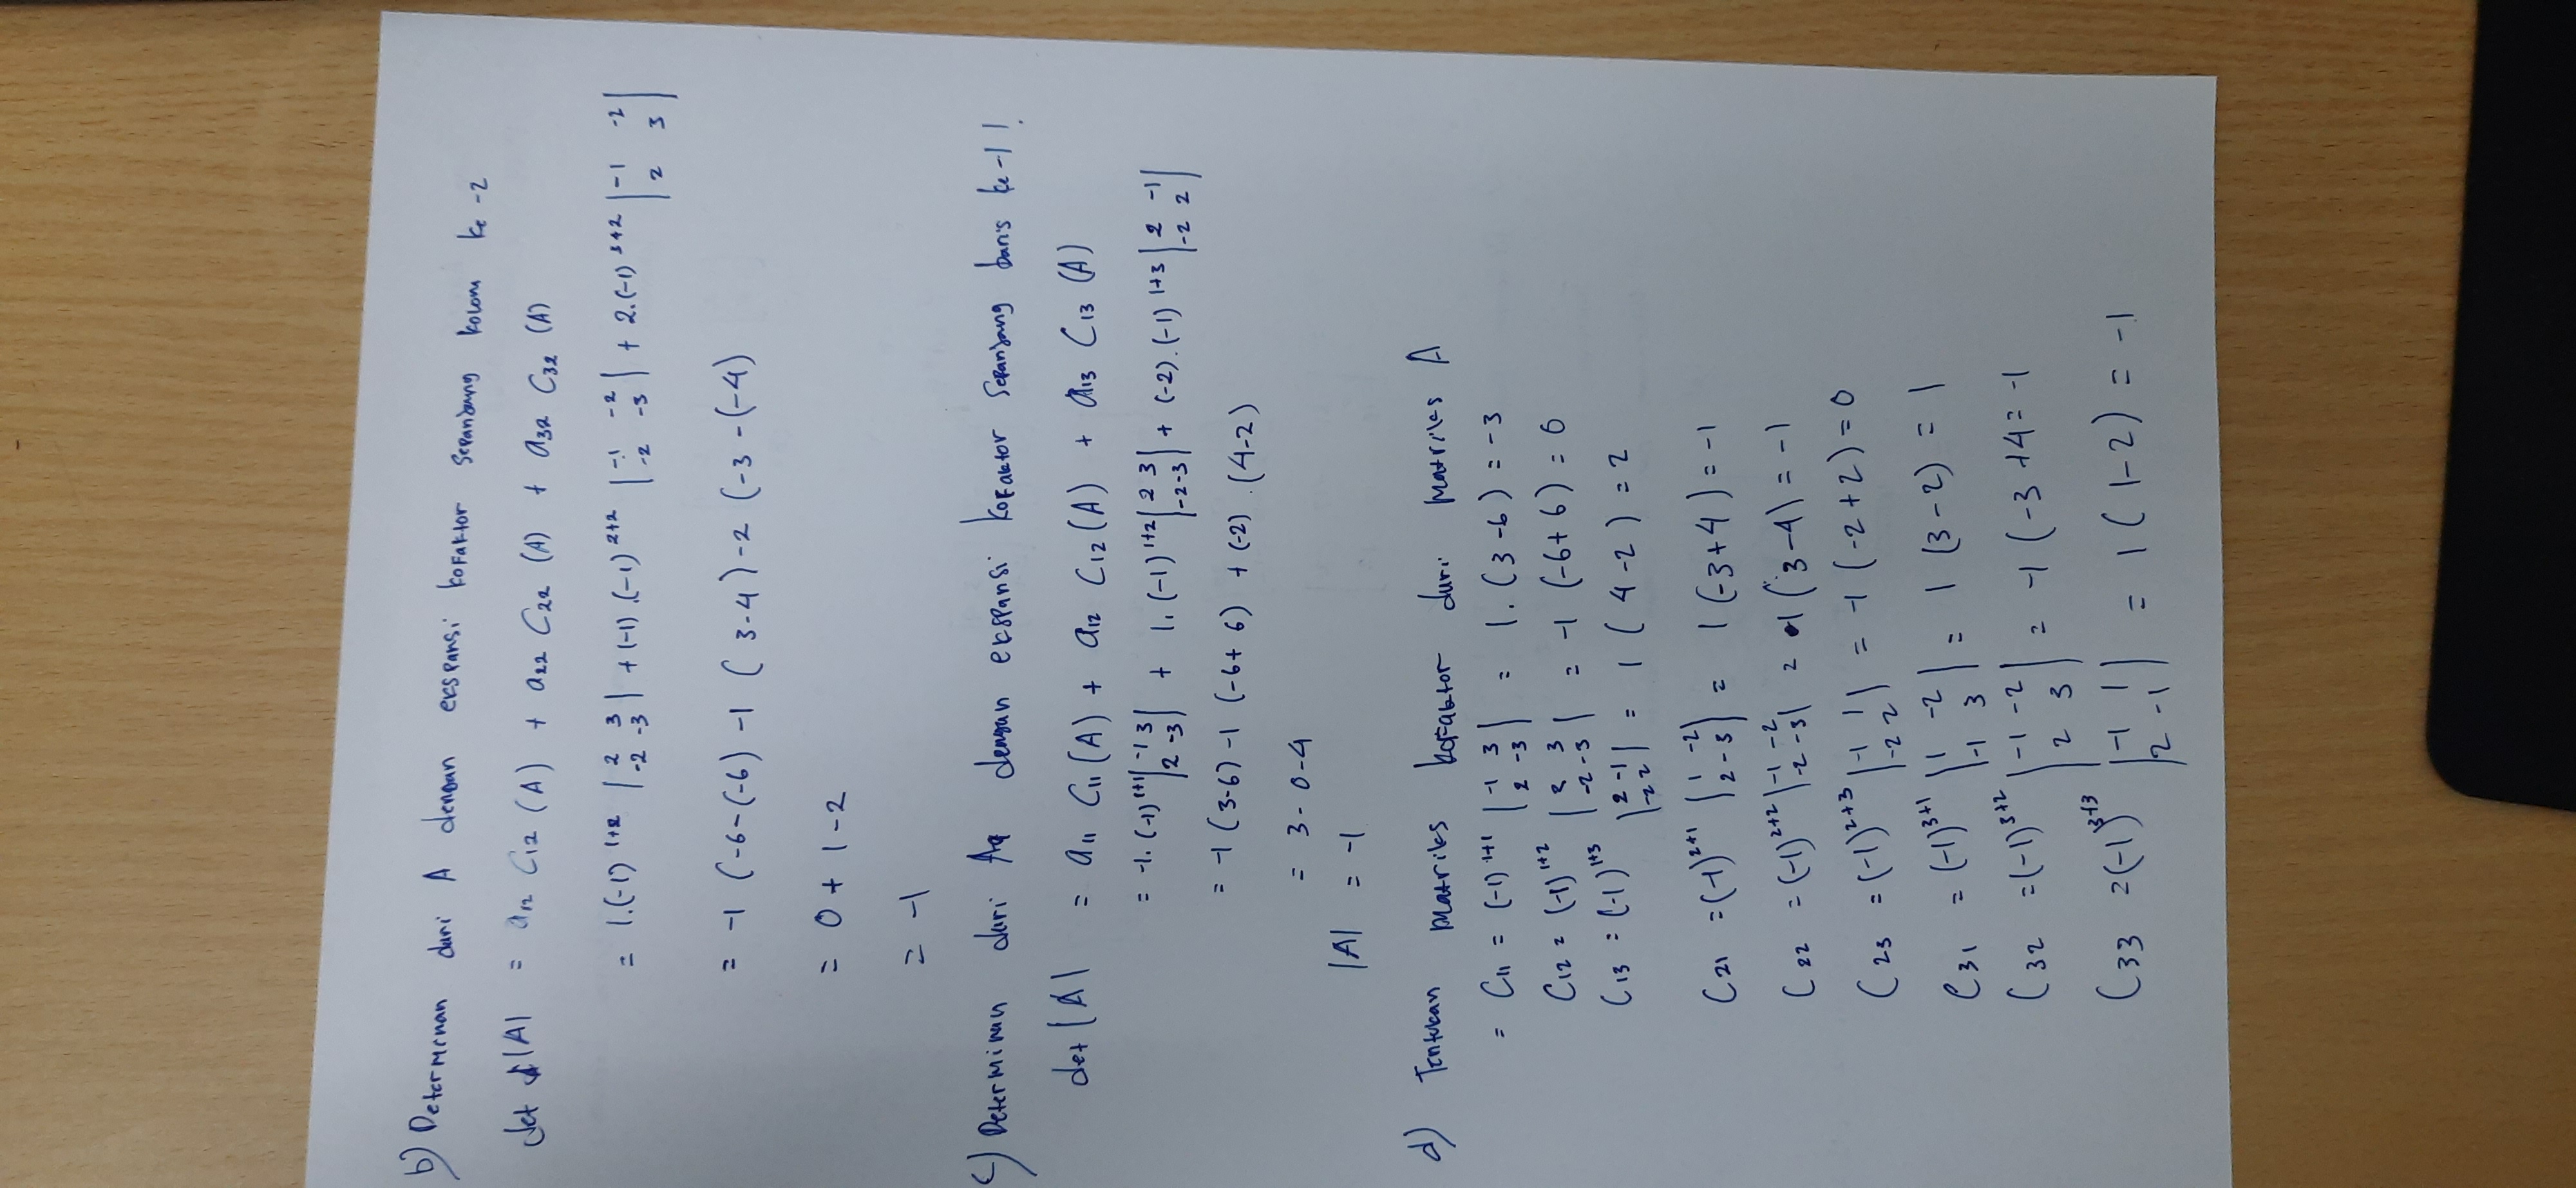 b) Determinan dari A dengan ekspansi kofaktor sepanjang kolom ke -2
det |A| = a12 C12 (A) + a22 C22 (A) + a32 C32 (A)
= 1.(-1)^1+2 |2 3 / -2 -3| + (-1).(-1)^2+2 |-1 -2 / -2 -3| + 2.(-1)^3+2 |-1 -2 / 2 3|
= -1 (-6-(-6) -1 (3-4) -2 (-3 -(-4)
= 0 + 1 - 2
= -1
c) Determinan dari A dengan ekspansi kofaktor sepanjang baris ke -1 !
det |A| = a11 C11 (A) + a12 C12 (A) + a13 C13 (A)
= -1. (-1)^1+1 |-1 3 / 2 -3| + 1. (-1)^1+2 |2 3 / -2 -3| + (-2).(-1)^1+3 |2 -1 / -2 2|
= -1 (3-6) -1 (-6+6) + (-2) . (4-2)
= 3 - 0 - 4
|A| = -1
d) Tentukan matriks kofaktor dari matriks A
= C11 = (-1)^1+1 |-1 3 / 2 -3| = 1. (3-6) = -3
C12 = (-1)^1+2 |2 3 / -2 -3| = -1 (-6+6) = 0
C13 = (-1)^1+3 |2 -1 / -2 2| = 1 (4-2) = 2
C21 = (-1)^2+1 |1 -2 / 2 -3| = 1 (-3+4) = -1
C22 = (-1)^2+2 |-1 -2 / -2 -3| = 1 (3-4) = -1
C23 = (-1)^2+3 |-1 1 / -2 2| = -1 (-2+2) = 0
C31 = (-1)^3+1 |1 -2 / -1 3| = 1 (3-2) = 1
C32 = (-1)^3+2 |-1 -2 / 2 3| = -1 (-3+4 = -1
C33 = (-1)^3+3 |-1 1 / 2 -1| = 1 (1-2) = -1